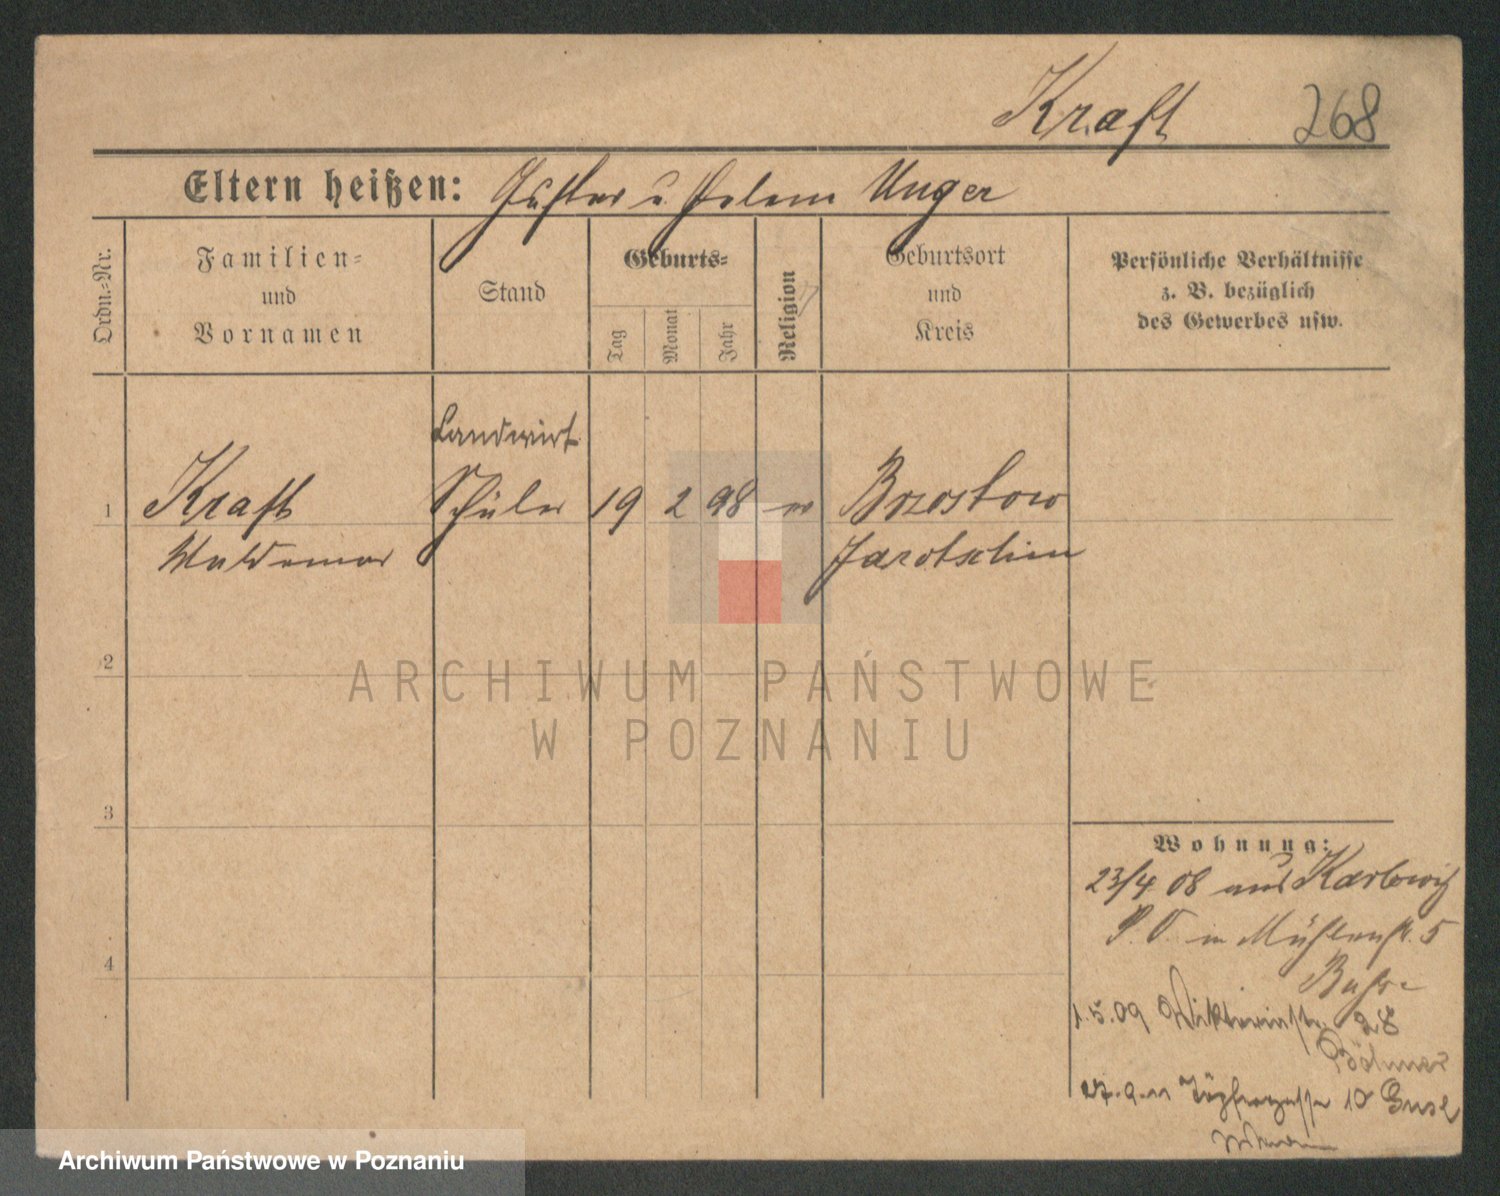 Kraft 268
Eltern heißen: Gustav u Helene Unger
Ordn.-Nr.
Familien-
und
Vornamen
Stand
Geburts-
Tag
Monat
Jahr
Religion
Geburtsort
und
Kreis
Persönliche Verhältnisse
z. B. bezüglich
des Gewerbes usw.
Landwirt
1 Kraft Schüler 19 2 98 ev Brzostow
Waldemar Jarotschin
2
ARCHIWUM PAŃSTWOWE
W POZNANIU
3
4
Wohnung:
23/4 08 aus Karlowitz
P.O. in Mühlenstr. 5
1.5.09 Viktoriastr 28
Böhmer
27.9.11 Töpfergasse 10
Archiwum Państwowe w Poznaniu